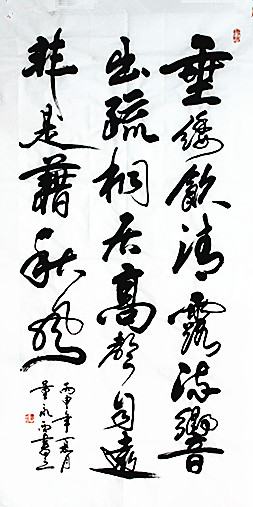 垂緌飲清露流響
出疏桐居高聲自遠
非是藉秋風
丙申年月